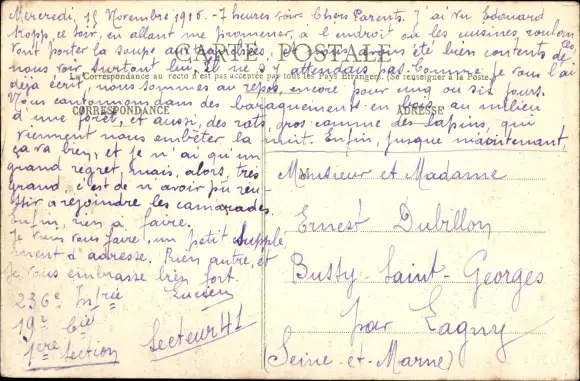 Mercredi, 15 Novembre 1916. - 7 heures soir. Chers Parents. J'ai vu Edouard
Kopp, ce soir, en allant me promener, à l'endroit où les cuisines roulantes
vont porter la soupe aux tranchées, et nous avons été bien contents de
CARTE POSTALE
nous voir, surtout lui, il ne s'y attendait pas. Comme je vous l'ai
La Correspondance au recto n'est pas acceptée par tous les Pays Étrangers. (Se renseigner à la Poste.)
déjà écrit, nous sommes au repos, encore pour cinq ou six jours.
Nous cantonnons dans des baraquements en bois, au milieu
CORRESPONDANCE
ADRESSE
d'une forêt, et aussi, des rats, gros comme des lapins, qui
viennent nous embêter la nuit. Enfin, jusque maintenant,
ça va bien, et je n'ai qu'un
grand regret, mais, alors, très
grand, c'est de n'avoir pu réus-
sir à rejoindre les camarades.
Enfin, rien à faire.
Je vais vous faire, un petit supplé
ment d'adresse. Rien autre, et
je vous embrasse bien fort.
Lucien
236e Infrie
19e Cie
1ere Section
Secteur 41
Monsieur et Madame
Ernest Dubillon
Bussy-Saint-Georges
par Lagny
(Seine-et-Marne)